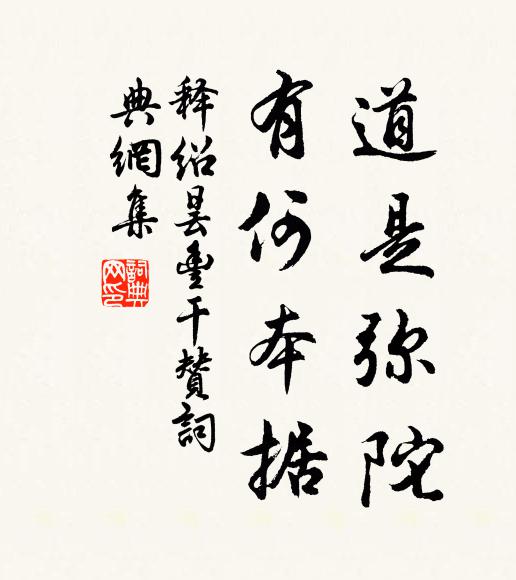 道是弥陀
有何本据
释绍昙豊干赞詞
典網集
詞典
网印